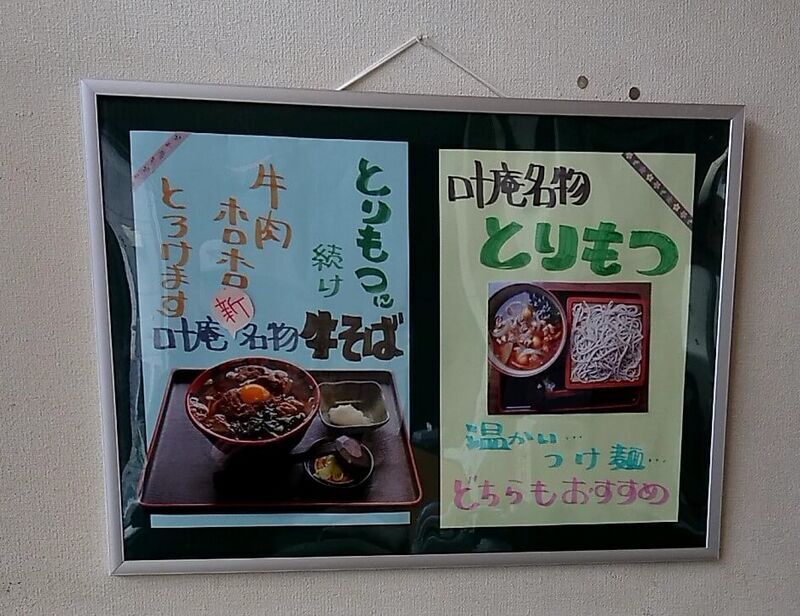 とりもつに
続け
牛肉
ホロホロ
とろけます
新
叶庵 名物 牛そば
叶庵名物
とりもつ
温かい…
つけ麺…
どちらもおすすめ